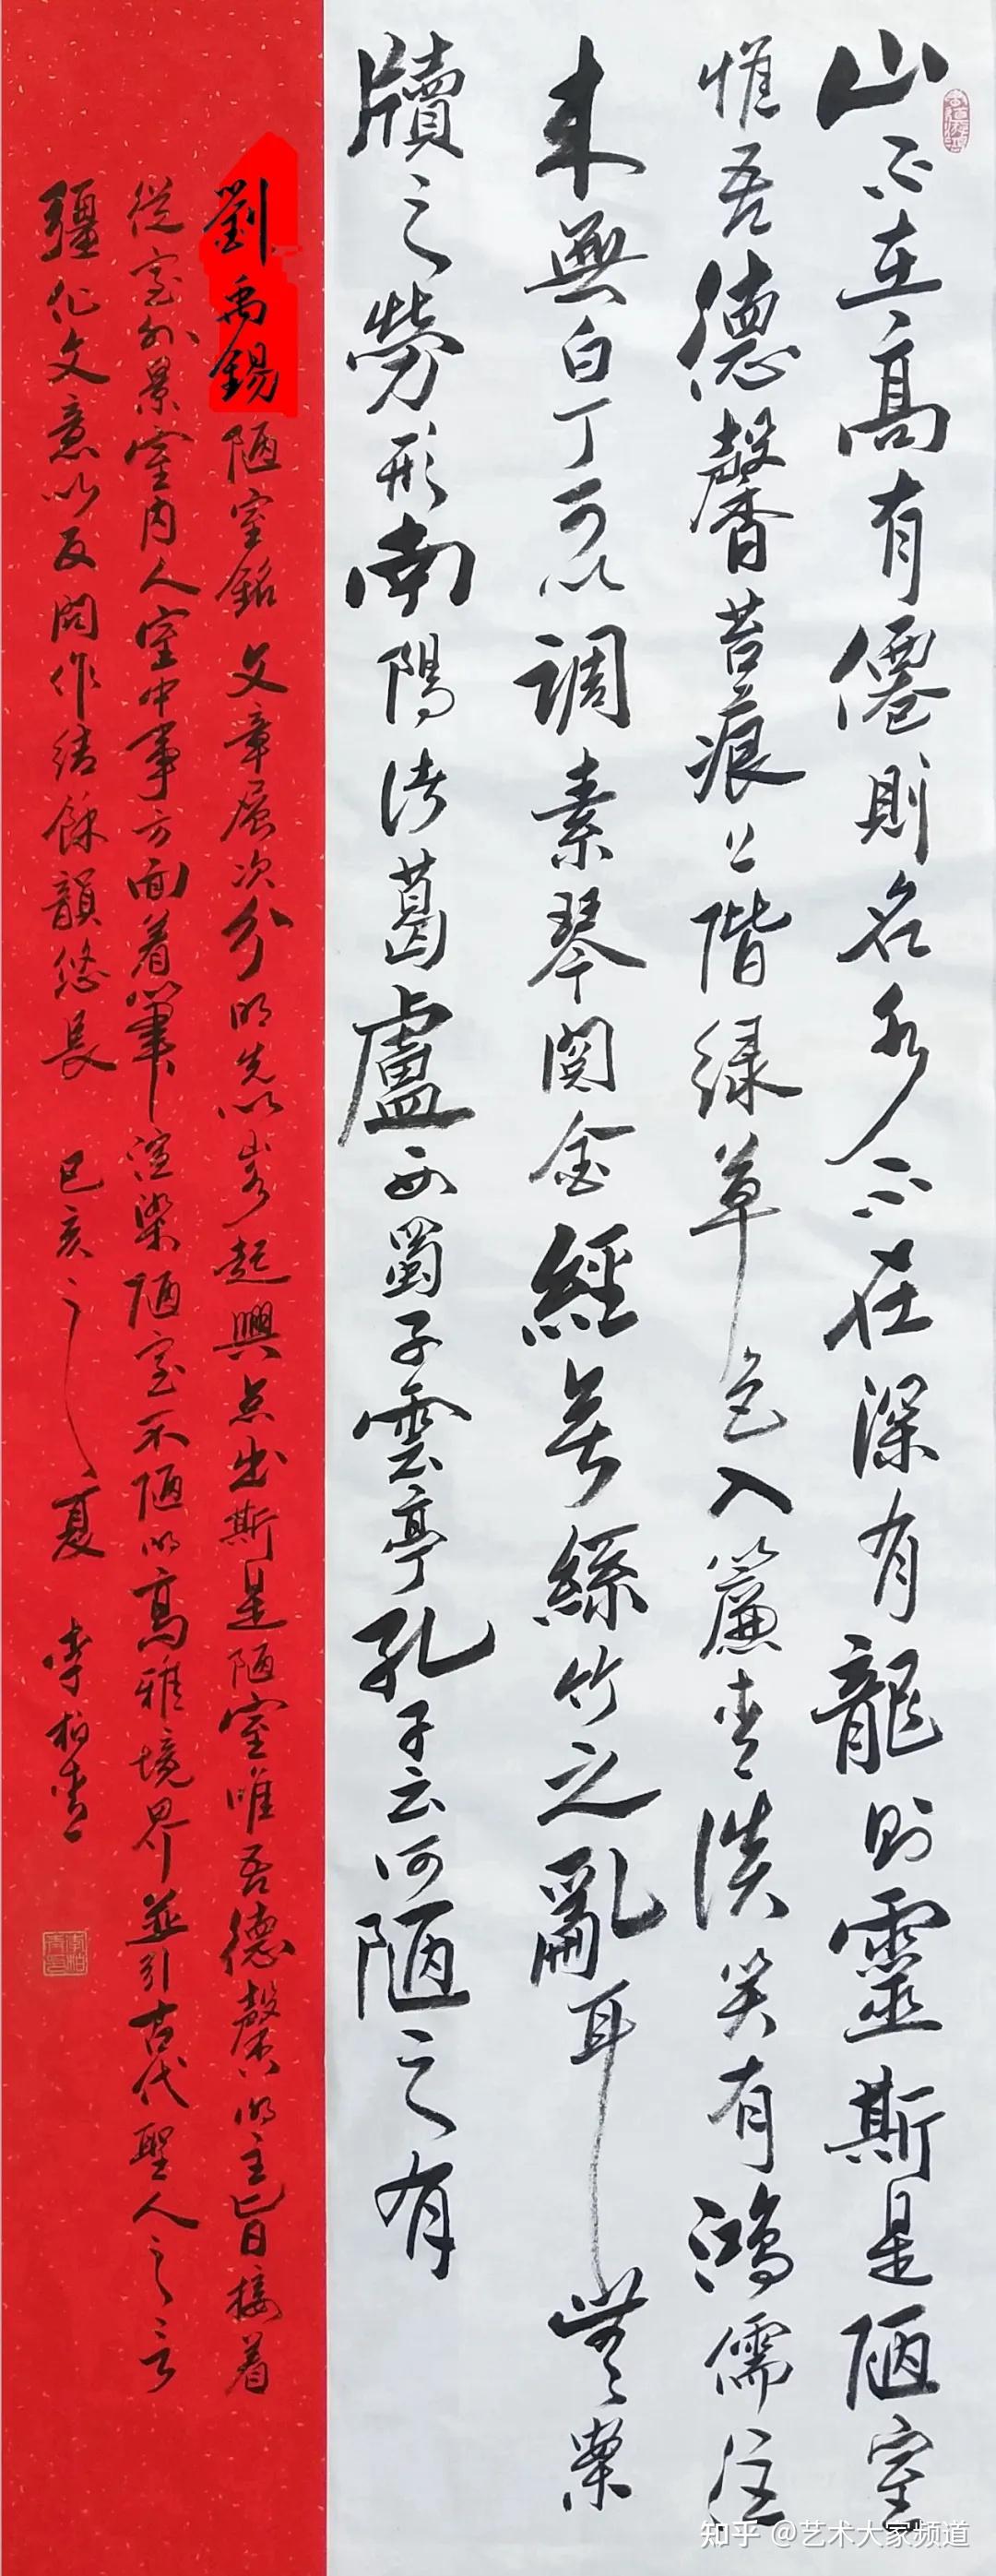 山不在高有僊則名水不在深有龍則靈斯是陋室
惟吾德馨苔痕上階緑草色入簾青談笑有鴻儒往
来無白丁可以調素琴閱金經無絲竹之亂耳無案
牘之勞形南陽诸葛盧西蜀子雲亭孔子云何陋之有
劉禹錫陋室銘 文章层次分明先以山水起興点出斯是陋室唯吾德馨的主旨接着
從室外景室内人室中事方面着筆渲染陋室不陋的高雅境界並引古代聖人之言
彊化文意以反問作结餘韻悠長 己亥之夏 李柏青
知乎 @艺术大家频道